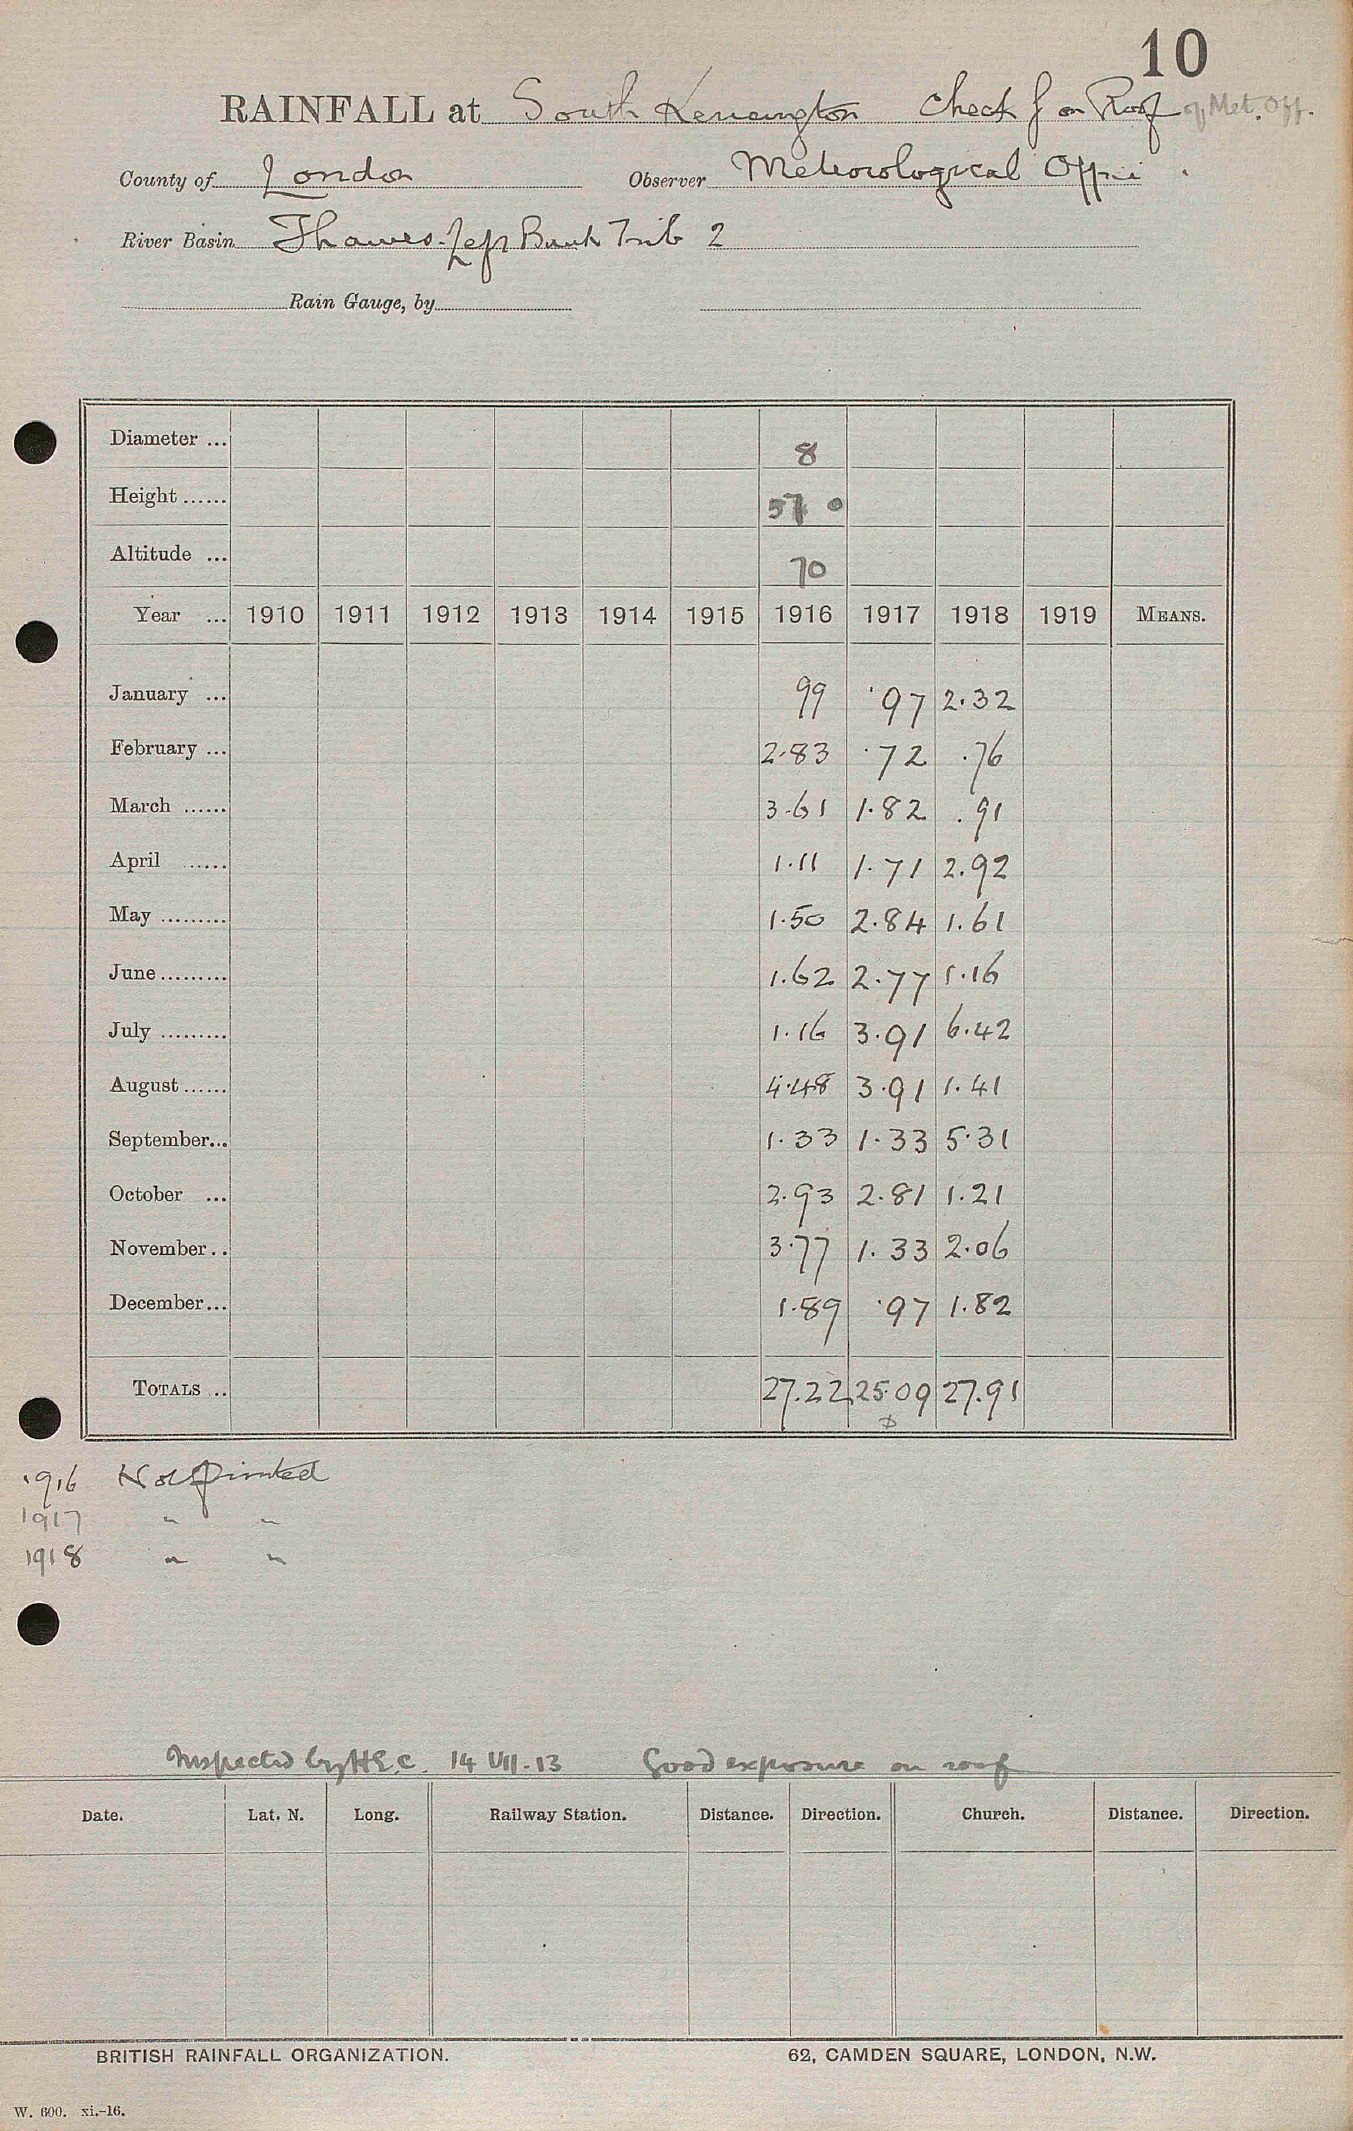 10
RAINFALL at South Kensington Check G on Roof of Met. Off.
County of London Observer Meteorological Office
River Basin Thames. Left Bank Trib 2
Rain Gauge, by
Diameter ... 8
Height ...... 57 0
Altitude ... 70
Year ... 1910 1911 1912 1913 1914 1915 1916 1917 1918 1919 MEANS.
January ... 99 ·97 2·32
February ... 2·83 ·72 .76
March ...... 3·61 1·82 .91
April ...... 1·11 1·71 2.92
May ......... 1·50 2·84 1.61
June ......... 1.62 2·77 1·16
July ......... 1·16 3·91 6·42
August ...... 4·48 3·91 1·41
September... 1·33 1·33 5·31
October ... 2·93 2·81 1·21
November.. 3·77 1·33 2·06
December... 1·89 ·97 1·82
TOTALS ... 27.22 25·09 27.91
1916 Not printed
1917 " "
1918 " "
Inspected by H.E.C. 14 VII·13 Good exposure on roof
Date. Lat. N. Long. Railway Station. Distance. Direction. Church. Distance. Direction.
BRITISH RAINFALL ORGANIZATION. 62, CAMDEN SQUARE, LONDON, N.W.
W. 600. xi.-16.